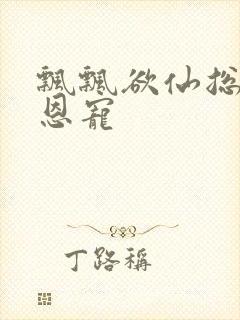 飘飘欲仙总
恩宠
丁路稱